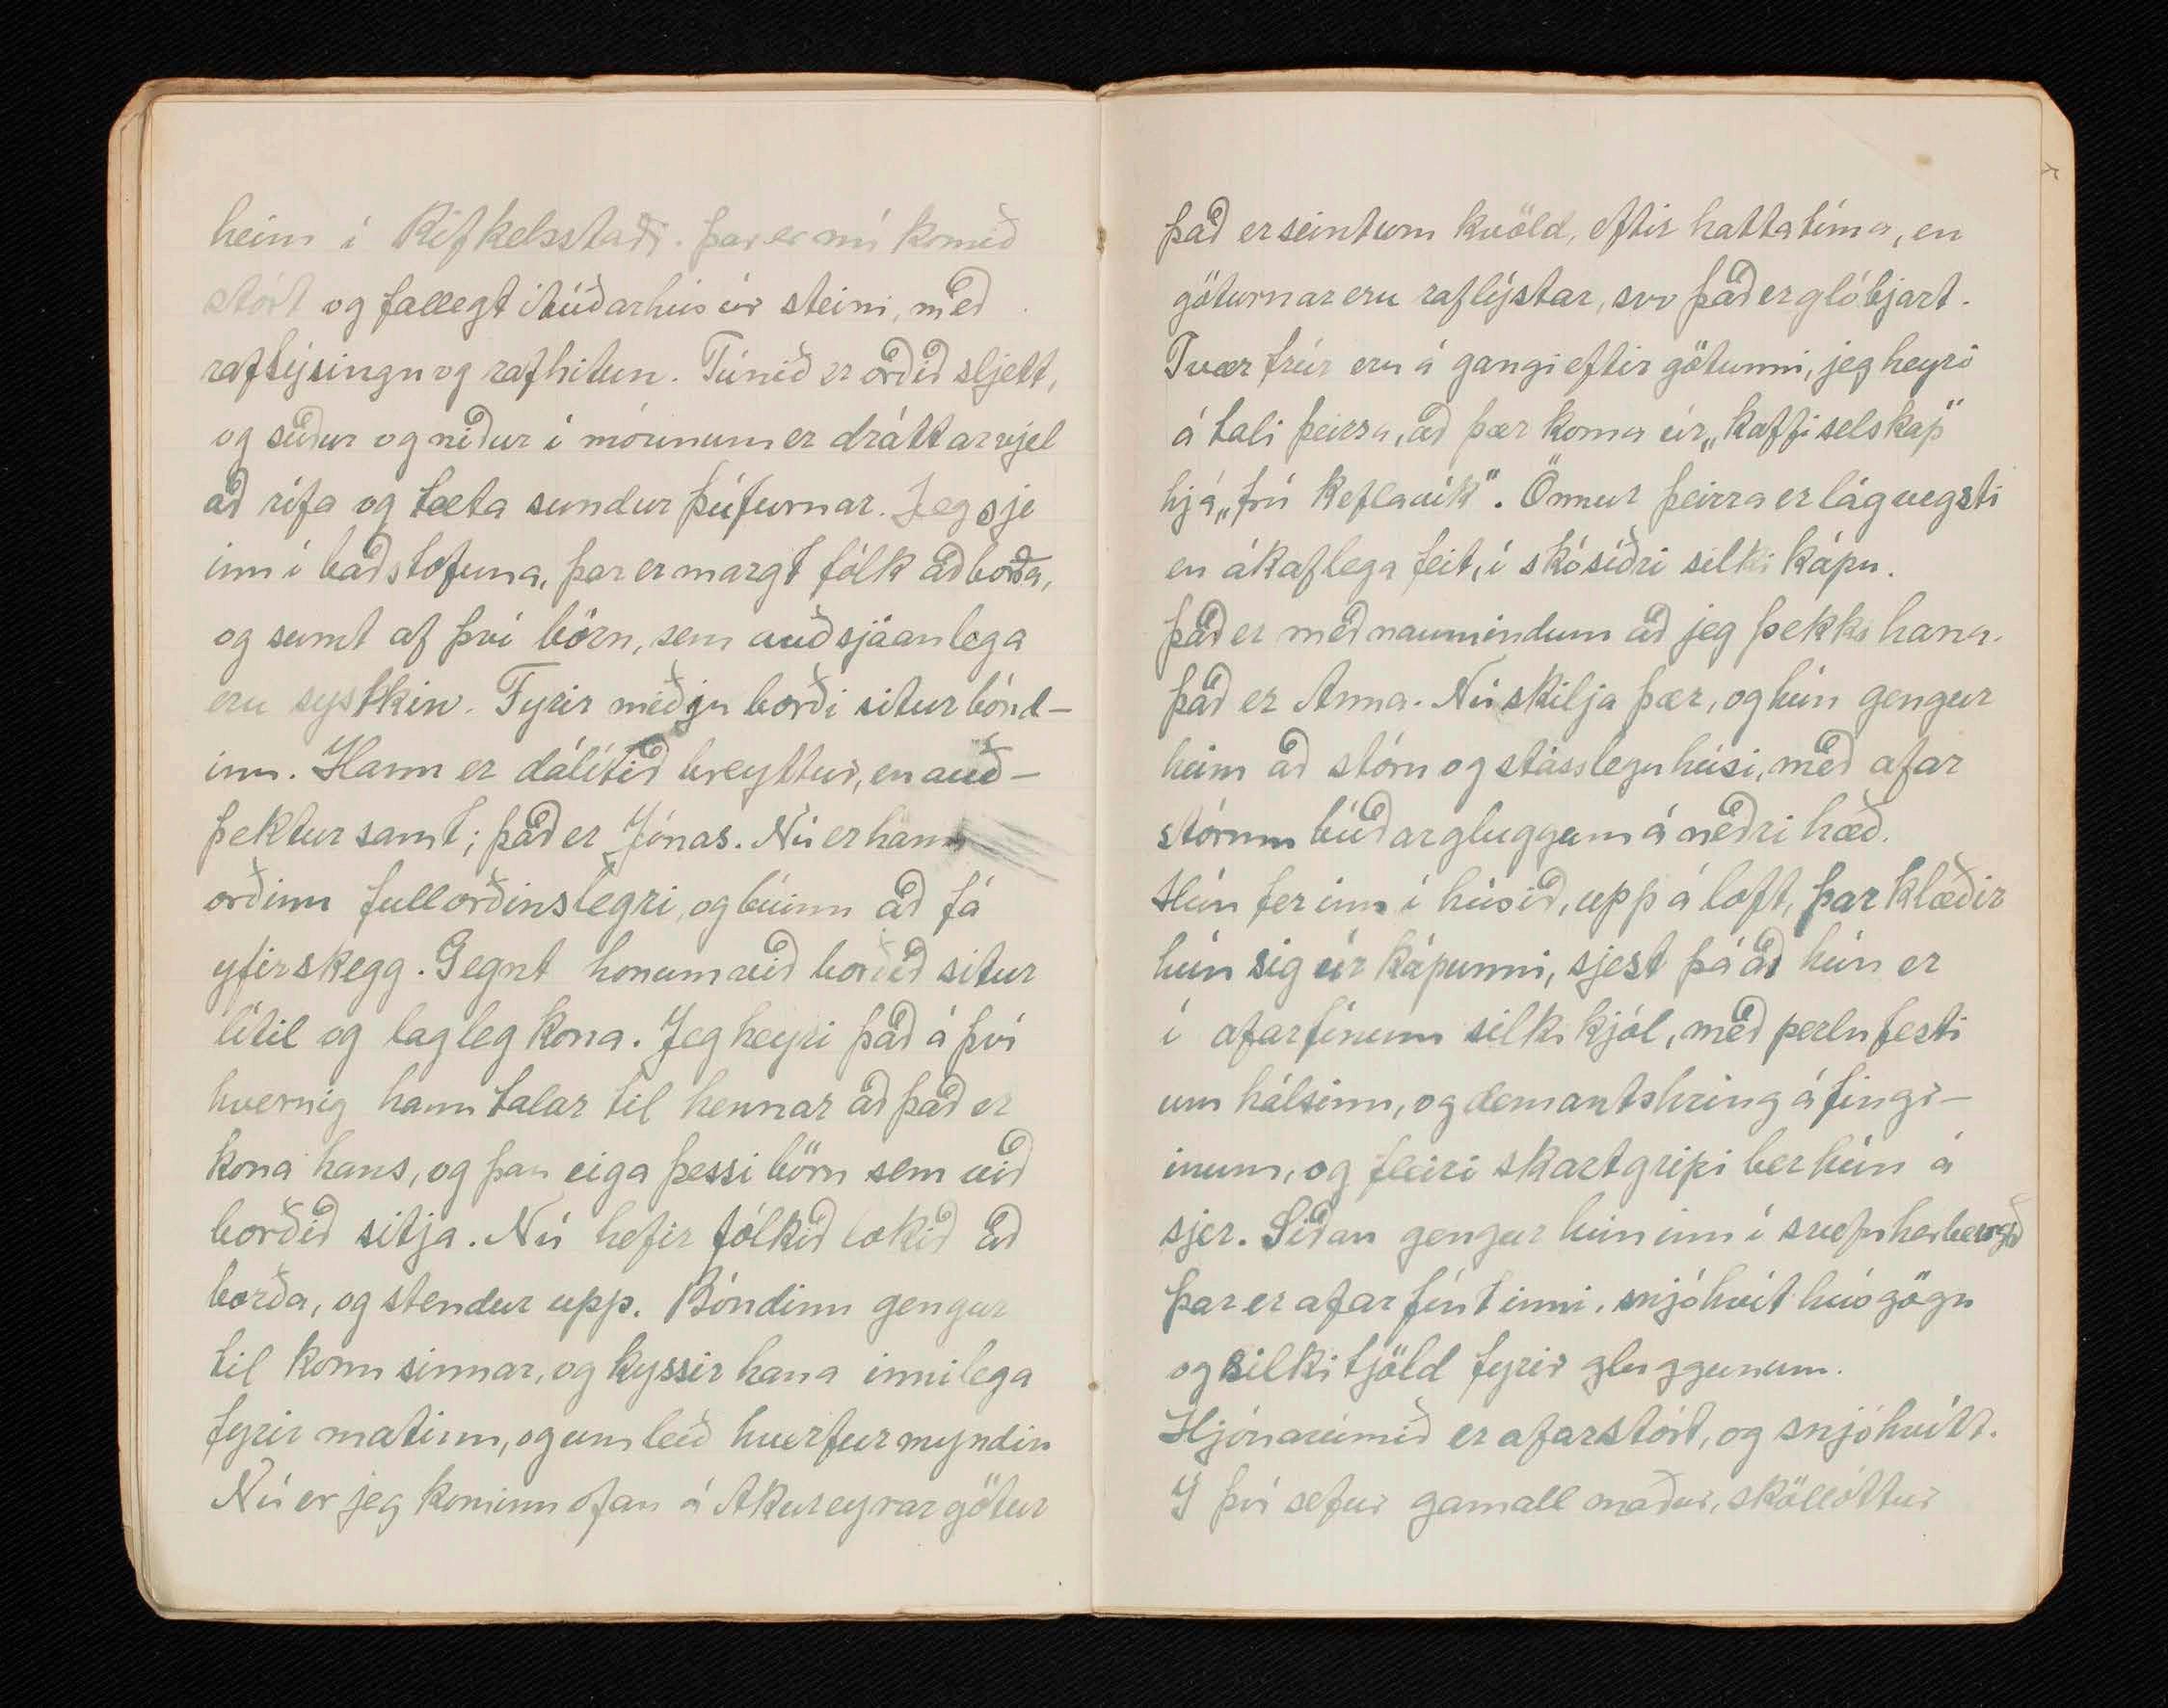 heim í Rifkelsstaði. Þar er nú komið
stórt og fallegt íbúðarhús úr steini, með
raflýsingu og rafhitun. Túnið er orðið sljett,
og suður og niður í móunum er dráttarvjel
að rífa og tæta sundur þúfurnar. Jeg sje
inn í baðstofuna, þar er margt fólk að borða,
og sumt af því börn, sem auðsjáanlega
eru systkin. Fyrir miðju borði situr bónd-
inn. Hann er dálítið breyttur, en auð-
þektur samt; það er Jónas. Nú er hann
orðinn fullorðinslegri, og búinn að fá
yfirskegg. Gegnt honum við borðið situr
lítil og lagleg kona. Jeg heyri það á því
hvernig hann talar til hennar að það er
kona hans, og þau eiga þessi börn sem við
borðið sitja. Nú hefir fólkið lokið að
borða, og stendur upp. Bóndinn gengur
til konu sinnar, og kyssir hana innilega
fyrir matinn, og um leið hverfur myndin
Nú er jeg kominn ofan á Akureyrar götur
Það er seint um kvöld, eftir háttatíma, en
göturnar eru raflýstar, svo það er glóbjart.
Tvær frúr eru á gangi eftir götunni, jeg heyri
á tali þeirra, að þær koma úr „kaffiselskap"
hjá „frú Keflavík". Önnur þeirra er lágvegsti
en ákaflega feit, í skósíðri silki kápu.
Það er með naumindum að jeg þekki hana.
Það er Anna. Nú skilja þær, og hún gengur
heim að stóru og stásslegu húsi, með afar
stórum búðargluggum á neðri hæð.
Hún fer inn í húsið, upp á loft, þar klæðir
hún sig úr kápunni, sjest þá að hún er
í afarfínum silki kjól, með perlufesti
um hálsinn, og demantshring á fingr-
inum, og fleiri skartgripi ber hún á
sjer. Síðan gengur hún inn í svefnherbergið
Þar er afar fínt inni, snjóhvít húsgögn
og silkitjöld fyrir gluggunum.
Hjónarúmið er afarstórt, og snjóhvítt.
Í því sefur gamall maður, sköllóttur